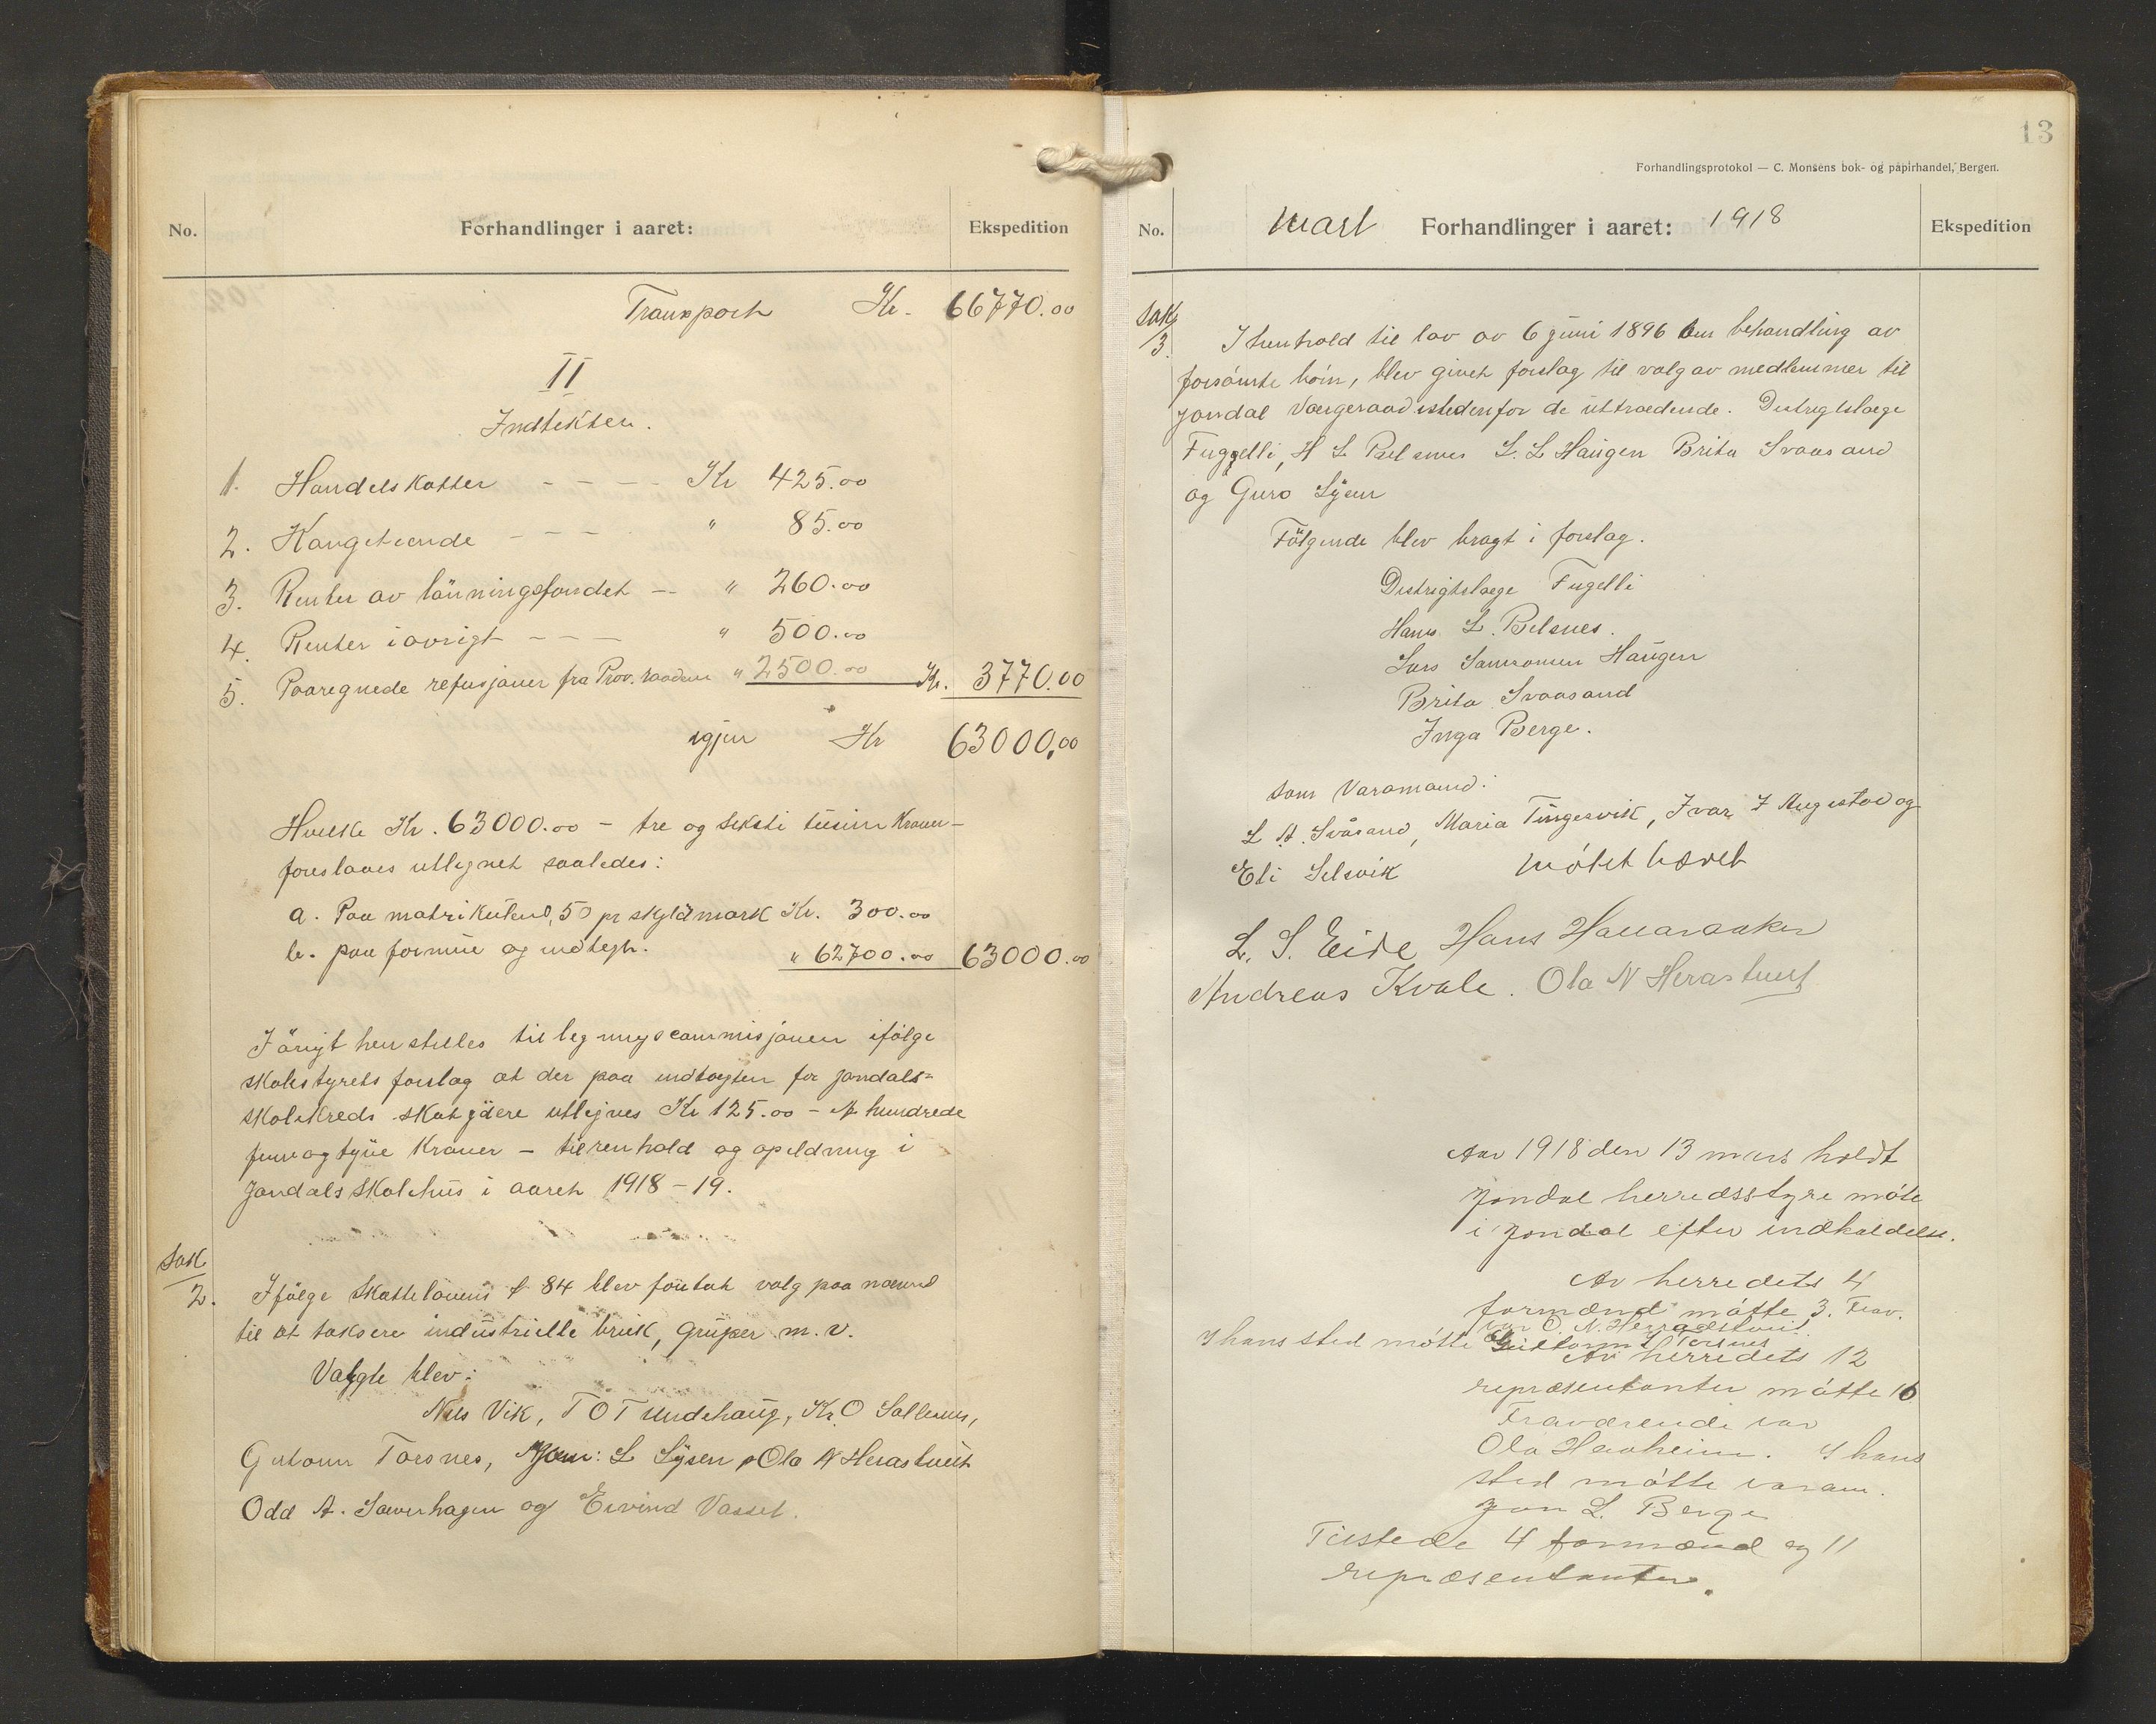 No.
Forhandlinger i aaret:
Ekspedition
Transport Kr. 66770.00
II
Indtekter.
1. Handelsskatter - - - - Kr 425.00
2. Kongetiende - - - " 85.00
3. Renter av lönningsfondet -- " 260.00
4. Renter iøvrigt - - - " 500.00
5. Paaregnede refusjoner fra Prov. raadene " 2500.00 Kr. 3770.00
igjen Kr 63000.00
Hvilke Kr. 63000.00 - tre og seksti tusin Kroner -
foreslaaes utlignet saaledes:
a. Paa matrikulend, 50 pr skyldmark Kr. 300.00
b. paa formue og indtegt. " 62700.00 63000.00
I örigt henstilles til legningscommisjonen ifölge
skolestyrets forslag at der paa indtægten for Jondals-
skolekreds skatydere utlignes Kr 125.00 - et hundrede
fem og tyve Kroner - til renhold og opeldning i
Jondals Skolehus i aaret 1918-19.
Sak
2. Ifölge Skattelovens § 84 blev foretat valg paa nævnd
til at taksere industrielle bruk, gruper m. v.
Valgte blev:
Nils Vik, T O T Undehaug, Kr. O Sallenes,
Gutorm Torsnes, L Lysen, Ola N Herastveit
Odd A. Samerhagen og Eivind Vasset.
13
Forhandlingsprotokol — C. Monsens bok- og papirhandel, Bergen.
No.
Mart Forhandlinger i aaret: 1918
Ekspedition
Sak
3. I henhold til lov av 6 juni 1896 om behandling av
forsömte börn, blev givet forslag til valg av medlemmer til
Jondal Vergeraad istedenfor de uttroedende. Distrigtslæge
Fuggelli, H L Belsnes L. L Haugen Brita Svaasand
og Guro Lysen
Fölgende blev bragt i forslag.
Distrigtslæge Fugelli
Hans L. Belsnes.
Lars Samsonsen Haugen
Brita Svaasand
Inga Berge.
Som Varamænd:
L. A. Svåsand, Maria Tingesvik, Ivar I Augestad og
Eli Selsvik Mötet hævet
L. S. Eide Hans Hauaraaker
Andreas Kvale. Ola N Herastveit
Aar 1918 den 13 mars holdt
Jondal herredsstyre möte
i Jondal efter indkaldelse.
Av herredets 4
formænd mötte 3. Frav.
var O. N. Herradstveit.
I hans sted mötte Guttorm L Torsnes
Av herredets 12
repræsentanter mötte 10
Fraværende var
Ola Herheim. I hans
sted mötte varam.
Jon L. Berge
Tilstede 4 formænd og 11
repræsentanter.